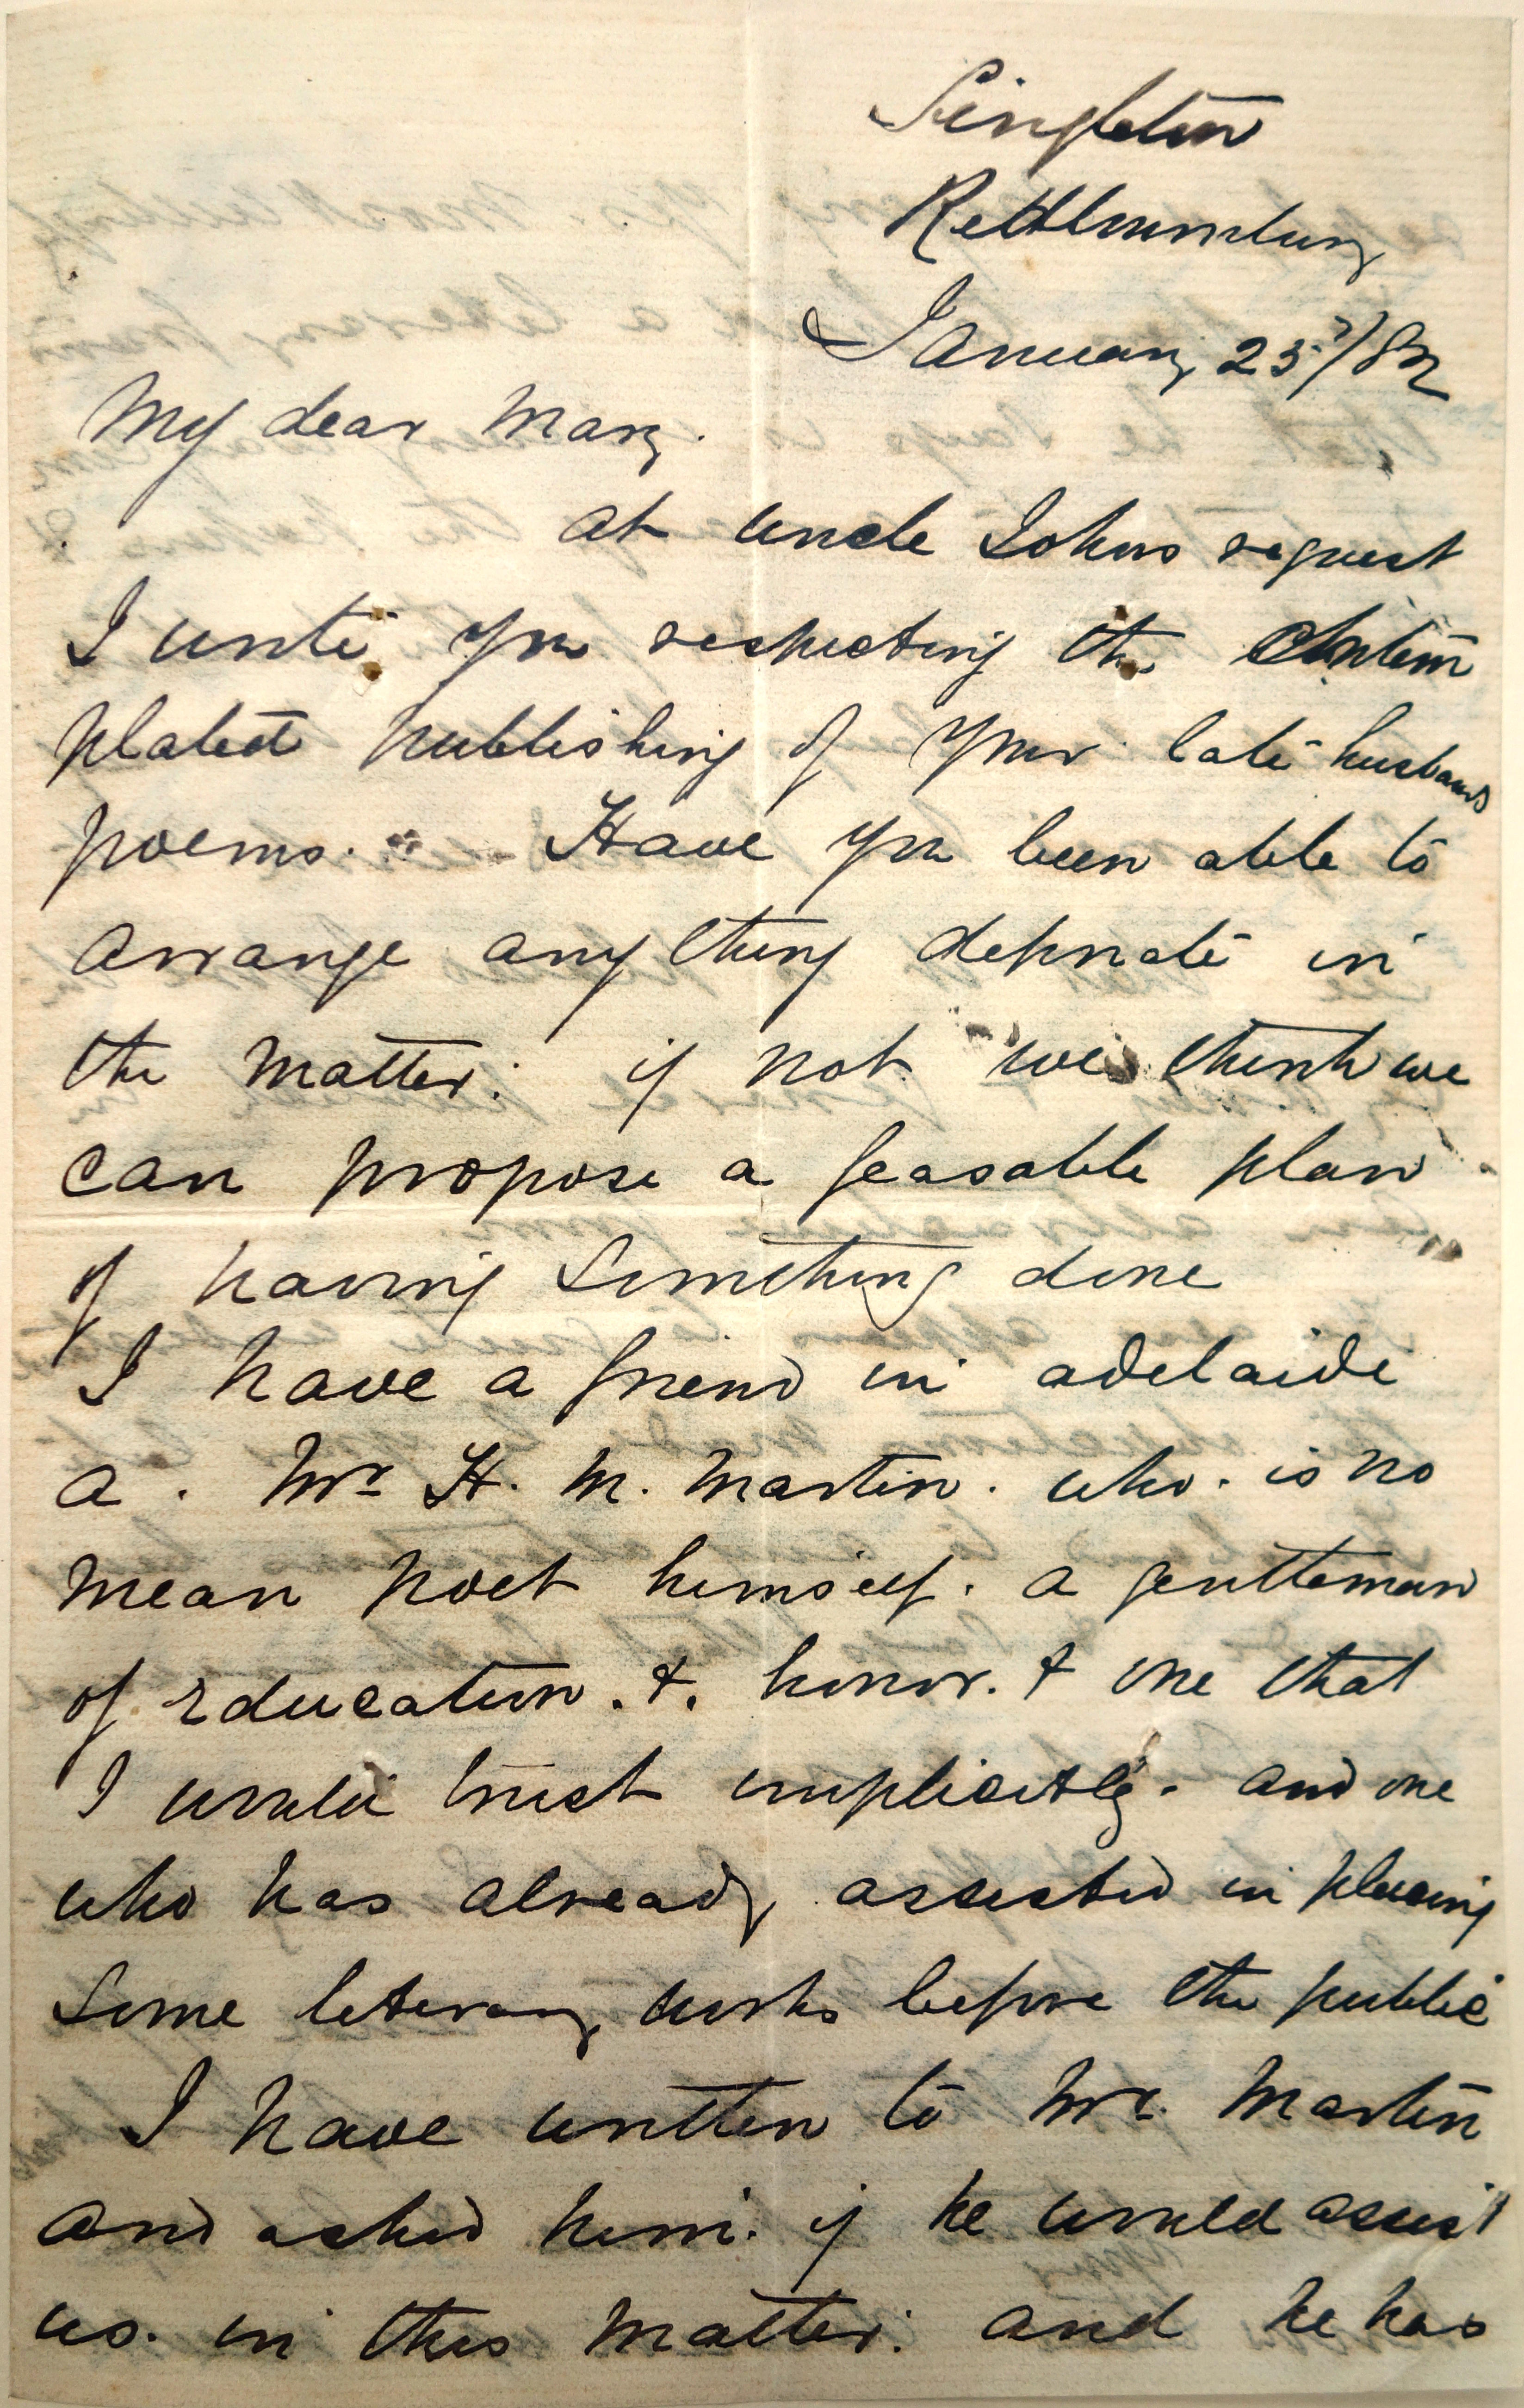 Singleton
January 25th/82
My dear Mary.
At uncle Johns request
I write you respecting the Contem
plated publishing of your late husbands
poems. Have you been able to
arrange any thing definate in
the matter. if not we think we
can propose a feasable plan
of having Something done
I have a friend in adelaide
a. Mr H. M. Martin. who. is no
mean poet himself. a gentleman
of Education. &. honor. & one that
I would trust implicitly. and one
who has already assisted in placing
Some literary works before the public
I have written to Mr. Martin
and asked him. if he would assist
us. in this matter. and he has